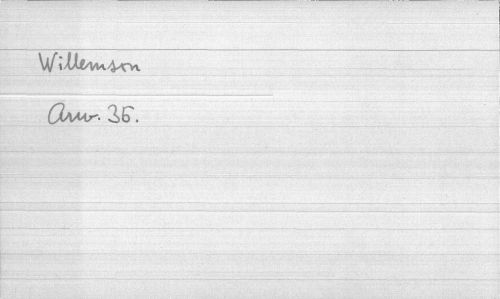 Willemson
Arw. 35.